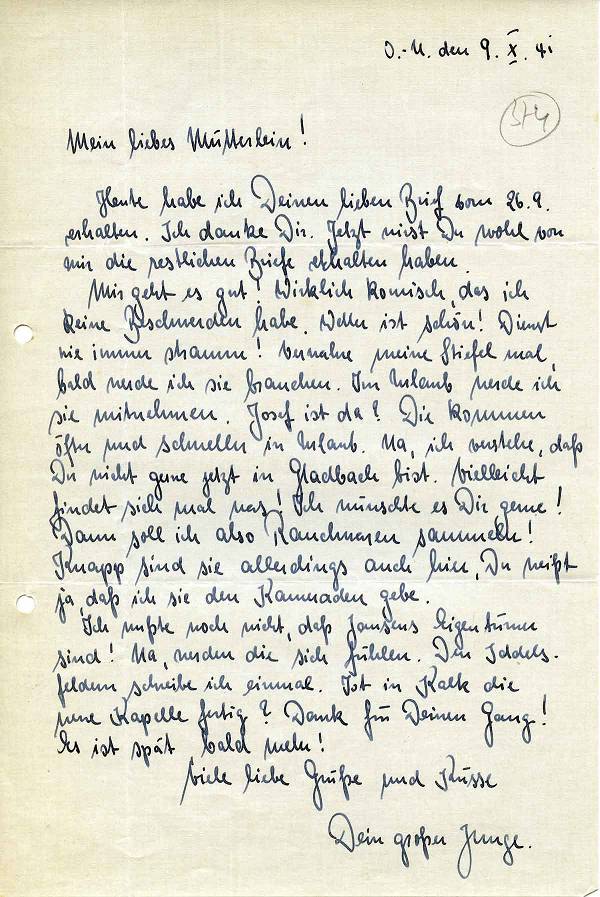 O.-U. den 9. X. 41
374
Mein liebes Mütterlein!
Heute habe ich Deinen lieben Brief vom 26.9.
erhalten. Ich danke Dir. Jetzt wirst Du wohl von
mir die restlichen Briefe erhalten haben.
Mir geht es gut! Wirklich komisch, das ich
keine Beschwerden habe. Wetter ist schön! Dienst
wie immer stramm! Verwahre meine Stiefel mal,
bald werde ich sie brauchen. Im Urlaub werde ich
sie mitnehmen. Josef ist da? Die kommen
öfter und schneller in Urlaub. Na, ich verstehe, daß
Du nicht gerne jetzt in Gladbach bist. Vielleicht
findet sich mal was! Ich wünschte es Dir gerne!
Dann soll ich also Rauchwaren sammeln!
Knapp sind sie allerdings auch hier, Du weißt
ja, daß ich sie den Kameraden gebe.
Ich wußte noch nicht, daß Jansens Eigentümer
sind! Na, werden die sich fühlen. Den Iddels-
feldern schreibe ich einmal. Ist in Kalk die
neue Kapelle fertig? Dank für Deinen Gang!
Es ist spät bald mehr!
Viele liebe Grüße und Küsse
Dein großer Junge.